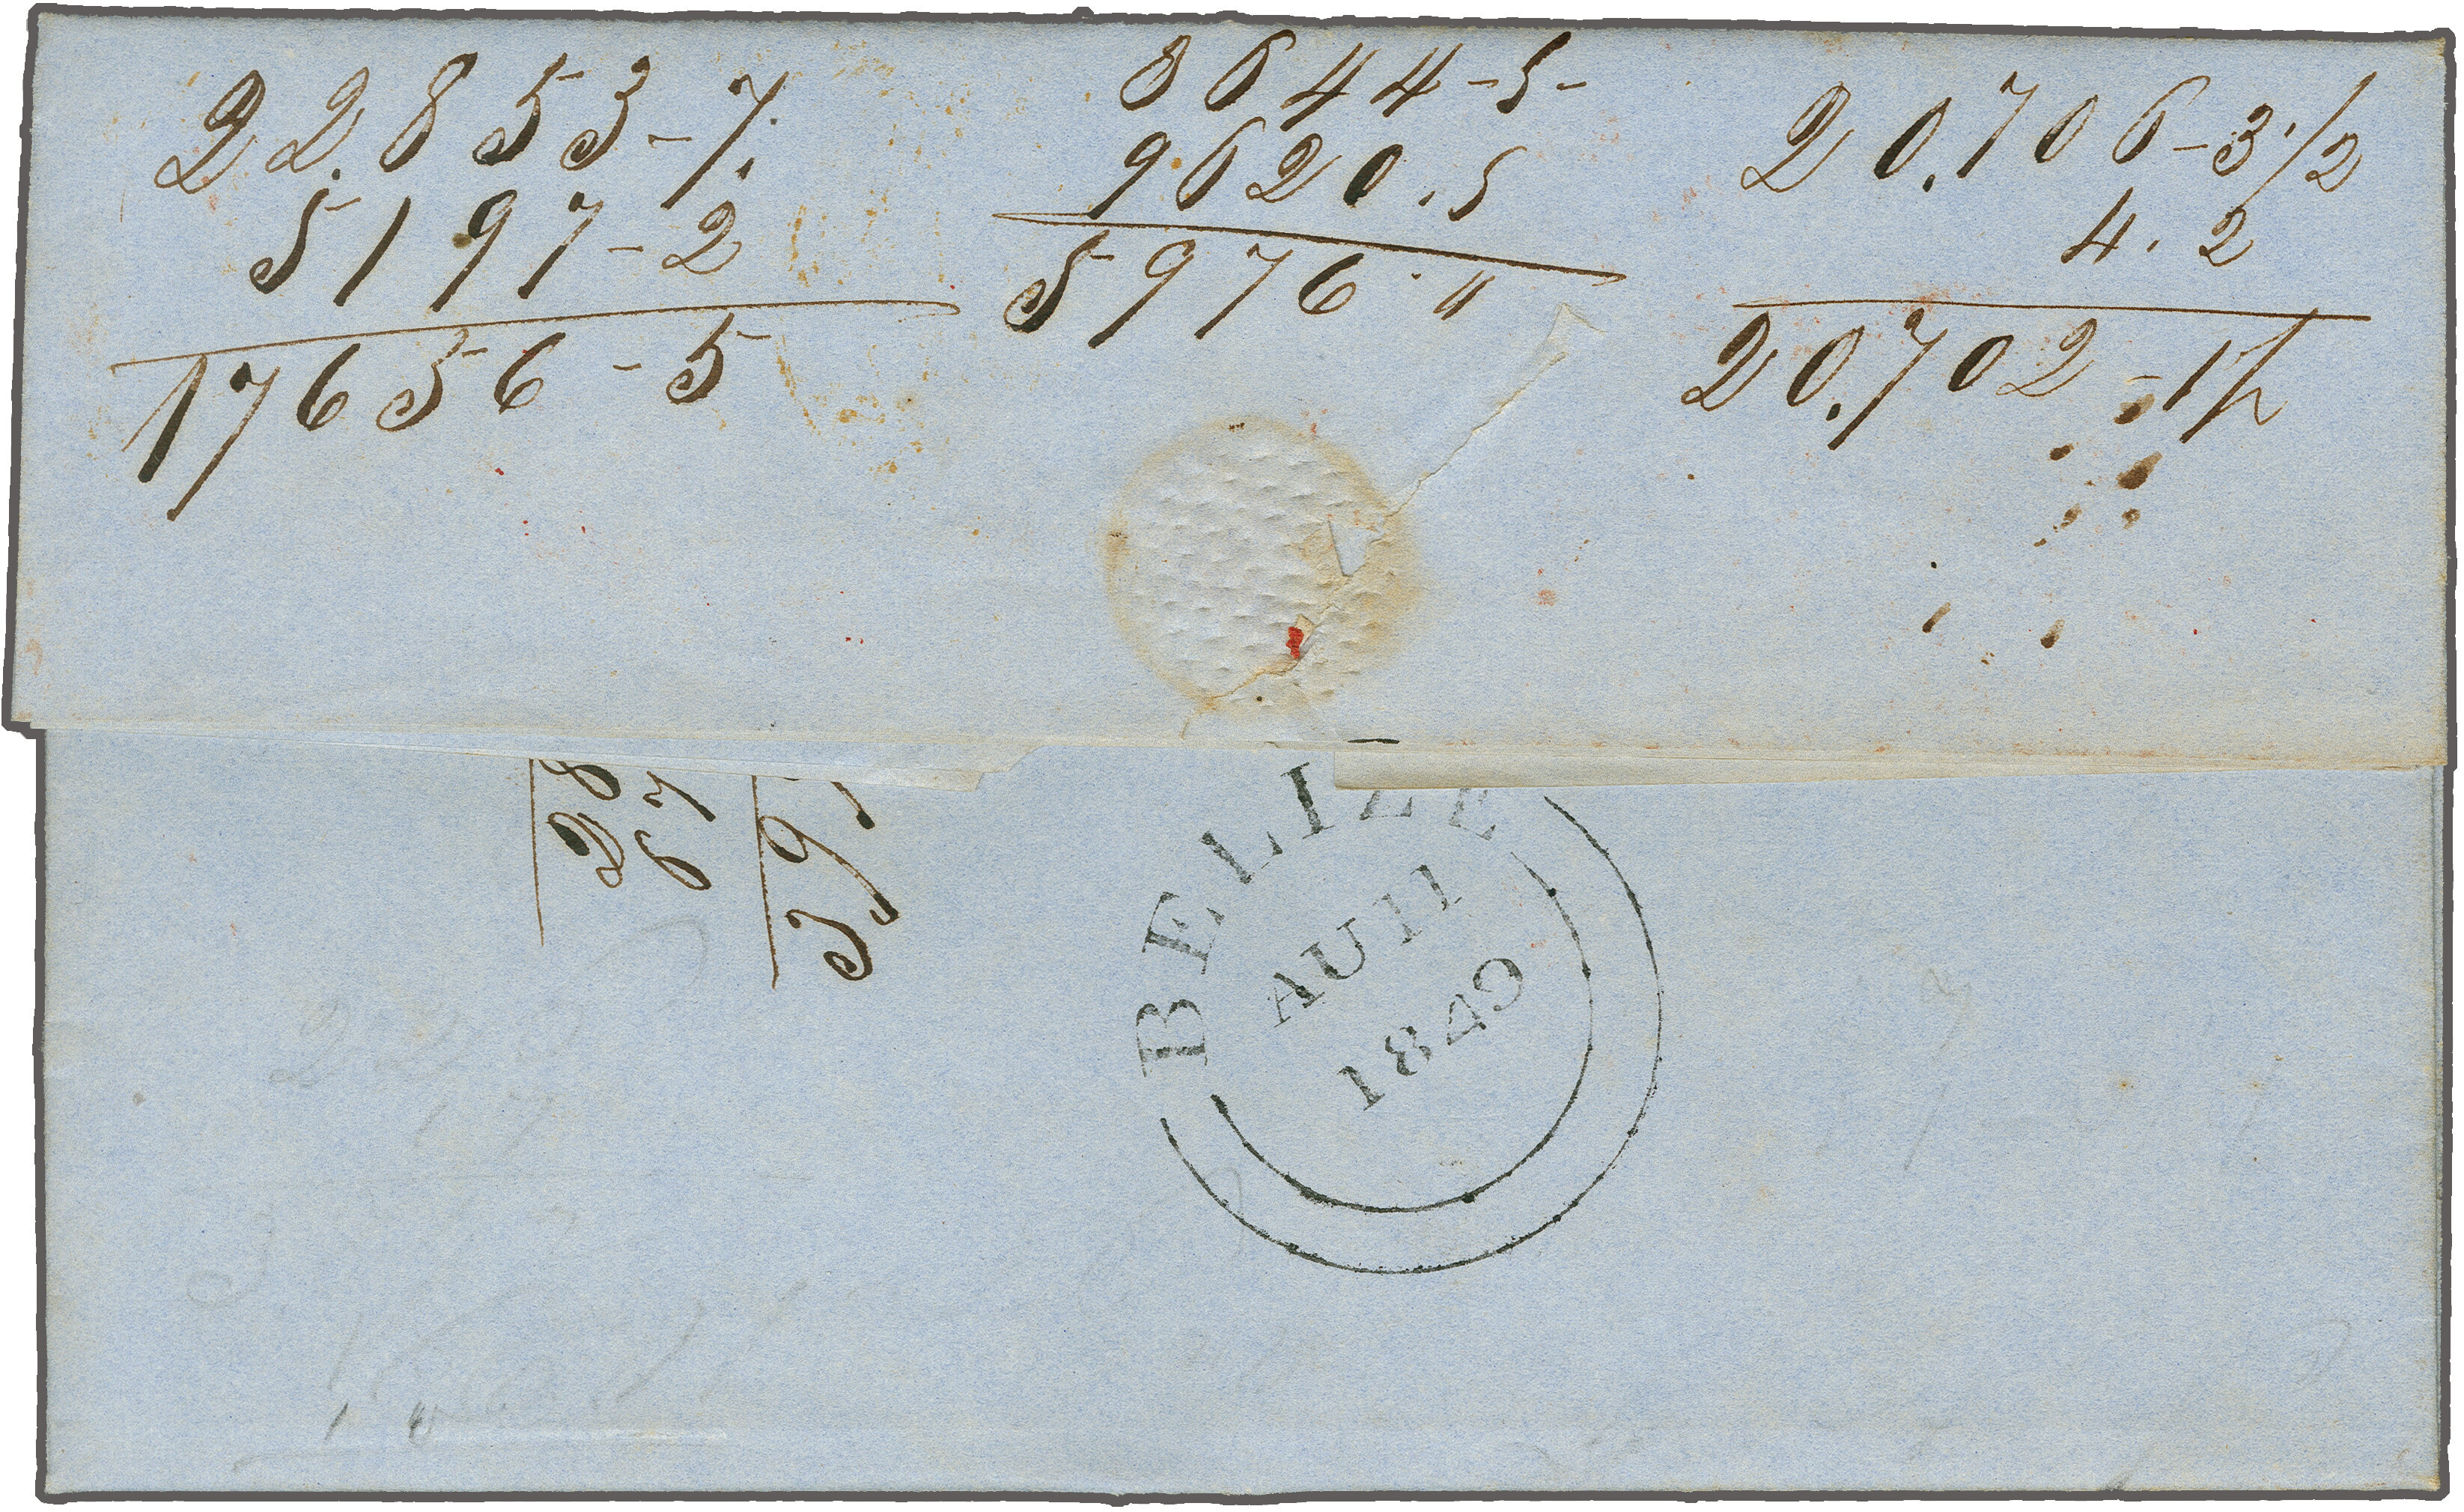 22.853-7.
5197-2
17656-5
3644-5-
9620.5
5976."
20.706-3 1/2
4.2
20.702-1 1/2
BELIZE
AU 11
1849